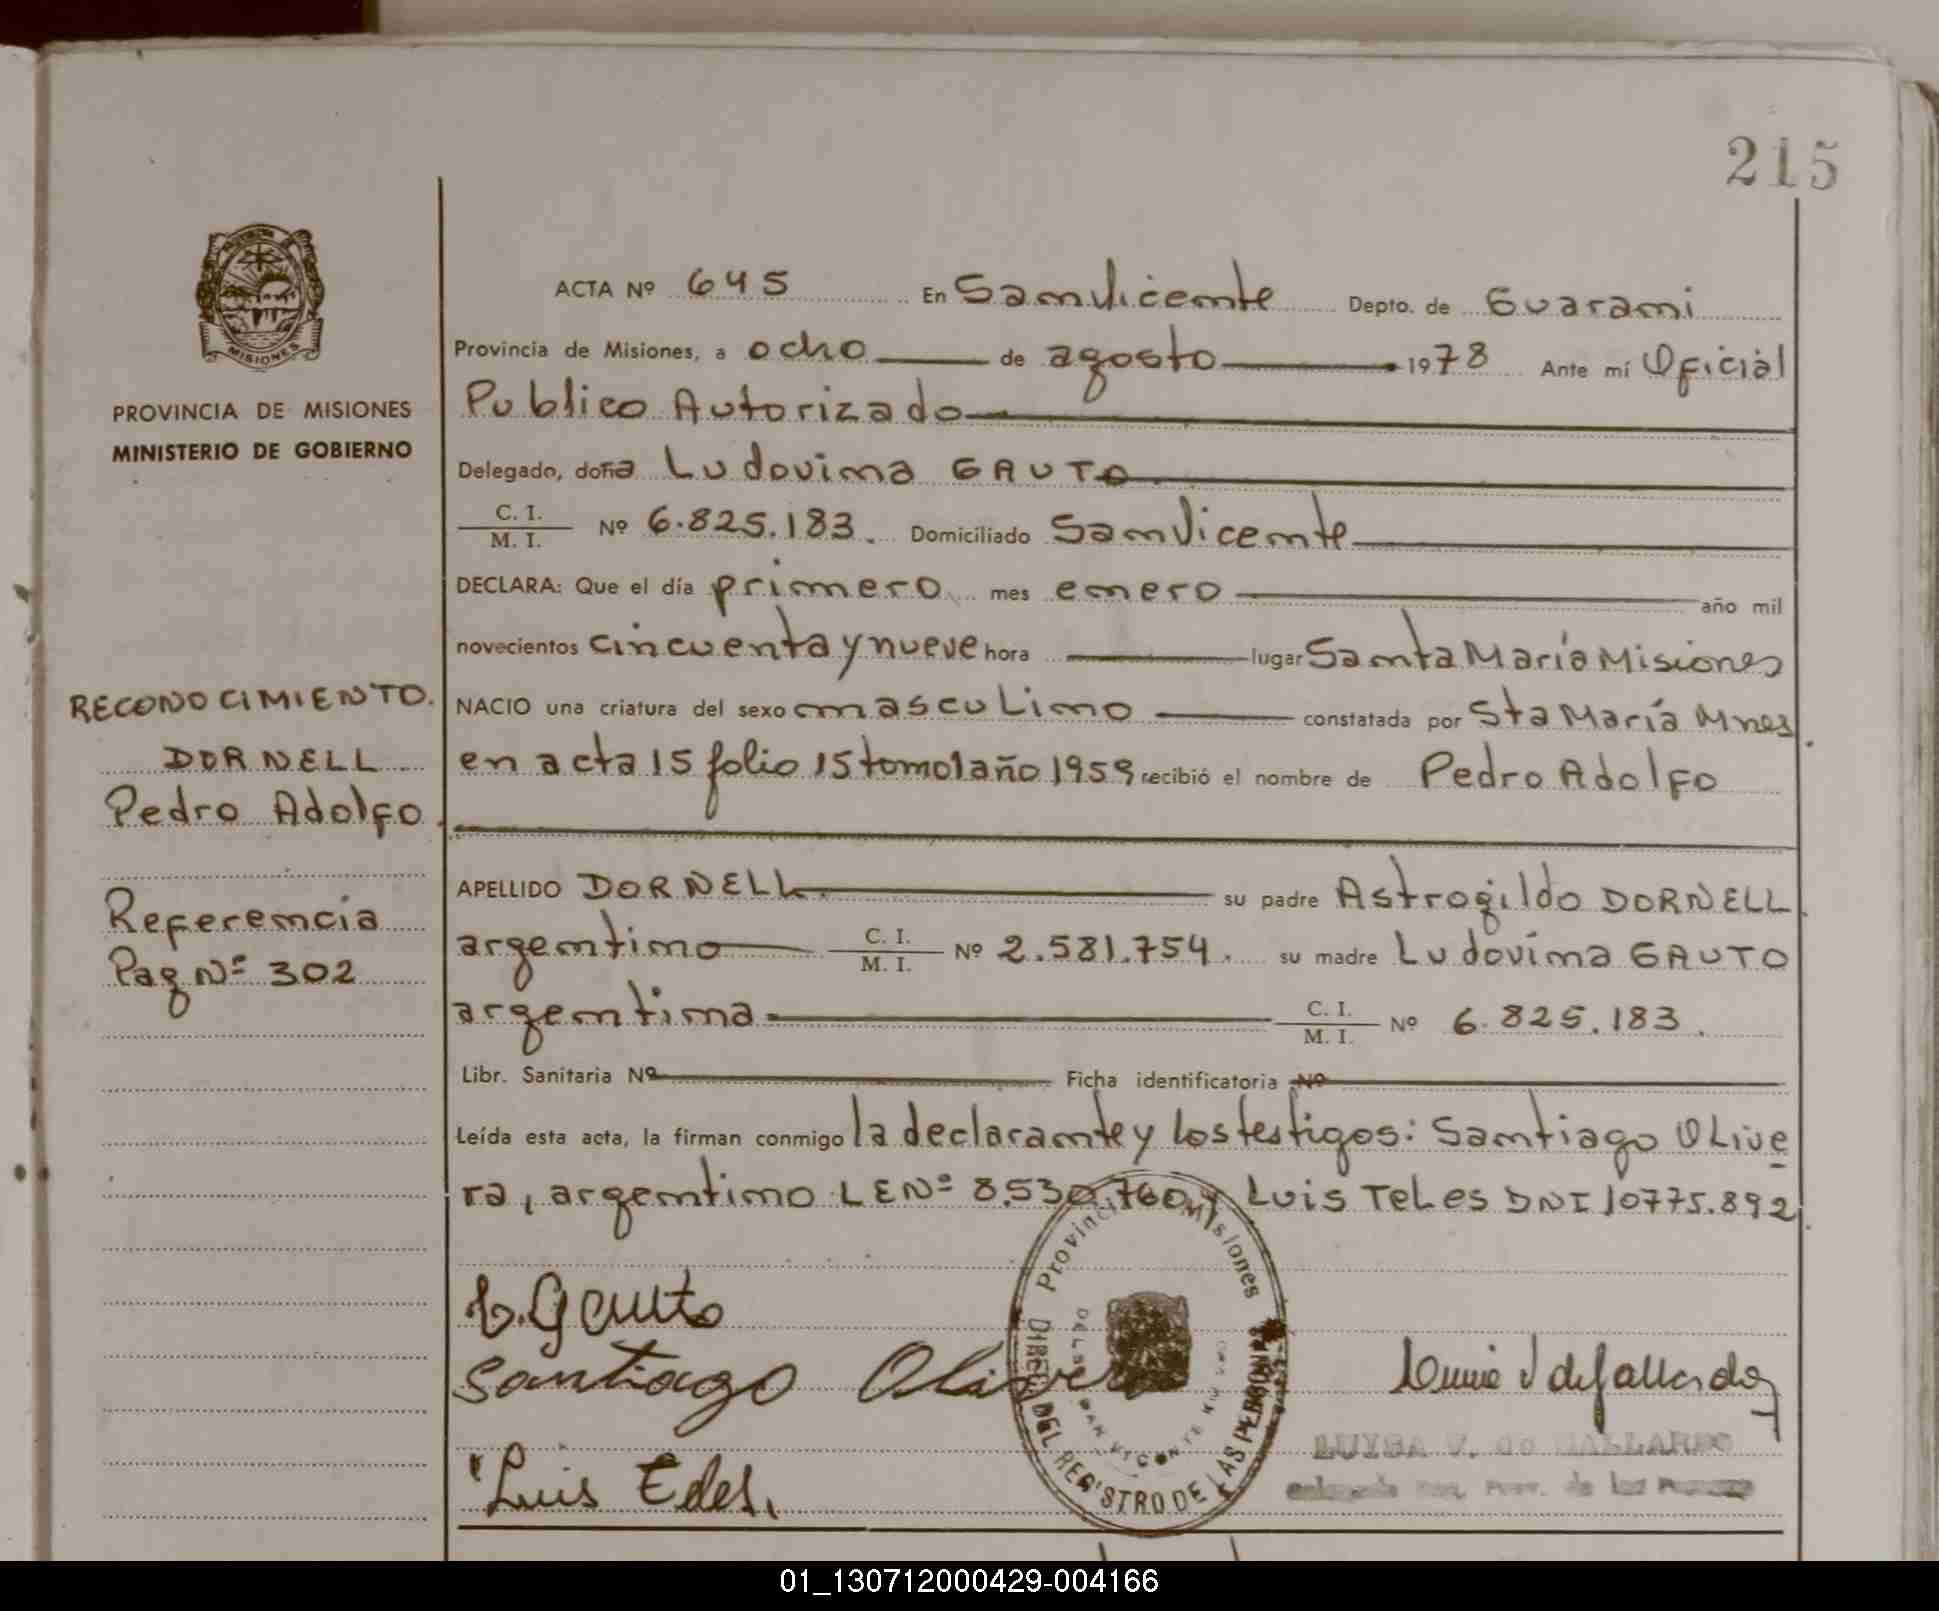 215
MISIONES
PROVINCIA DE MISIONES
MINISTERIO DE GOBIERNO
RECONOCIMIENTO.
DORNELL
Pedro Adolfo.
Referencia
Pag Nº 302
ACTA Nº 645 En San Vicente Depto. de Guarani
Provincia de Misiones, a ocho de agosto 1978 Ante mí Oficial
Publico Autorizado
Delegado, doña Ludovina GAUTO
C. I. / M. I. Nº 6.825.183. Domiciliado San Vicente
DECLARA: Que el día primero mes enero año mil
novecientos cincuenta y nueve hora lugar Santa María Misiones
NACIO una criatura del sexo masculino constatada por Sta María Mnes.
en acta 15 folio 15 tomo 1 año 1959 recibió el nombre de Pedro Adolfo
APELLIDO DORNELL. su padre Astrogildo DORNELL.
argentino C. I. / M. I. Nº 2.581.754. su madre Ludovina GAUTO
argentina C. I. / M. I. Nº 6.825.183.
Libr. Sanitaria Nº Ficha identificatoria Nº
Leída esta acta, la firman conmigo la declarante y los testigos: Santiago Olive
ra, argentino LE Nº 8.530.760 y Luis Teles DNI 10775.892.
L. Gauto
Santiago Olivera
Luis Teles
Provincia Misiones
DIREC. DEL REGISTRO DE LAS PERSONAS
LUISA V. de GALLARDO
01_130712000429-004166